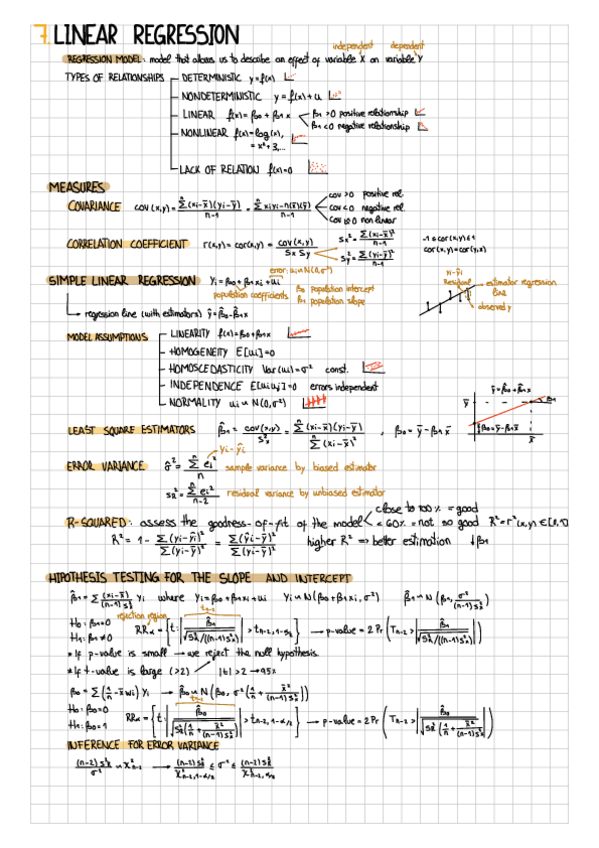 7. LINEAR REGRESSION
independent dependent
REGRESSION MODEL: model that allows us to describe an effect of variable X on variable Y
TYPES OF RELATIONSHIPS
DETERMINISTIC y=f(x)
NONDETERMINISTIC y=f(x)+u
LINEAR f(x)=β0+β1x
β1>0 positive relationship
β1<0 negative relationship
NONLINEAR f(x)=log(x),
=x²+3,...
LACK OF RELATION f(x)=0
MEASURES
COVARIANCE cov(x,y)=Σ(xi-x̄)(yi-ȳ)/n-1 = Σxiyi-n(x̄)(ȳ)/n-1
cov>0 positive rel.
cov<0 negative rel.
cov≅0 non linear
CORRELATION COEFFICIENT r(x,y)=cor(x,y)=cov(x,y)/SxSy
Sx²=Σ(xi-x̄)²/n-1
Sy²=Σ(yi-ȳ)²/n-1
-1≤cor(x,y)≤1
cor(x,y)=cor(y,x)
error: ui~N(0,σ²)
SIMPLE LINEAR REGRESSION Yi=β0+β1xi+ui
population coefficients
β0 population intercept
β1 population slope
yi-ŷi
Residual
estimator regression line
observed y
regression line (with estimators) ŷ=β̂0-β̂1x
MODEL ASSUMPTIONS
LINEARITY f(x)=β0+β1x
HOMOGENEITY E[ui]=0
HOMOSCEDASTICITY Var(ui)=σ² const.
INDEPENDENCE E[uiuj]=0 errors independent
NORMALITY ui~N(0,σ²)
ŷ=β̂0+β̂1x
β1
ȳ
β̂0=ȳ-β̂1x̄
x̄
LEAST SQUARE ESTIMATORS β̂1=cov(x,y)/S²x=Σ(xi-x̄)(yi-ȳ)/Σ(xi-x̄)², β0=ȳ-β1x̄
yi-ŷi
ERROR VARIANCE σ̂²=Σei²/n sample variance by biased estimator
SR²=Σei²/n-2 residual variance by unbiased estimator
R-SQUARED: assess the goodness-of-fit of the model
close to 100% = good
<60% = not so good
R²=r²(x,y)∈[0,1]
R²=1-Σ(yi-ŷi)²/Σ(yi-ȳ)²=Σ(ŷi-ȳ)²/Σ(yi-ȳ)² higher R² ⇒ better estimation ↓β1
HIPOTHESIS TESTING FOR THE SLOPE AND INTERCEPT
β̂1=Σ(xi-x̄)/(n-1)S²x Yi where Yi=β0+β1xi+ui Yi~N(β0+β1xi,σ²) β̂1~N(β1,σ²/(n-1)S²x)
rejection region
tn-2
H0:β1=0
H1:β1≠0
RRα={t:|β̂1/√S²R/((n-1)S²x)|>tn-2,1-α/2} → p-value=2Pr(Tn-2>|β̂1/√S²R/(n-1)S²x|)
*If p-value is small → we reject the null hypothesis.
*If t-value is large (>2) |t|>2→95%
β0=Σ(1/n-x̄wi)Yi → β̂0~N(β0,σ²(1/n+x̄²/(n-1)S²x))
tn-2
H0:β0=0
H1:β0=1
RRα={t:|β̂0/√S²R(1/n+x̄²/(n-1)S²x)|>tn-2,1-α/2} → p-value=2Pr(Tn-2>|β̂0/√S²R(1/n+x̄²/(n-1)S²x)|)
INFERENCE FOR ERROR VARIANCE
(n-2)S²R/σ²~χ²n-2 → (n-2)S²R/χ²n-2,1-α/2≤σ²≤(n-2)S²R/χ²n-2,α/2